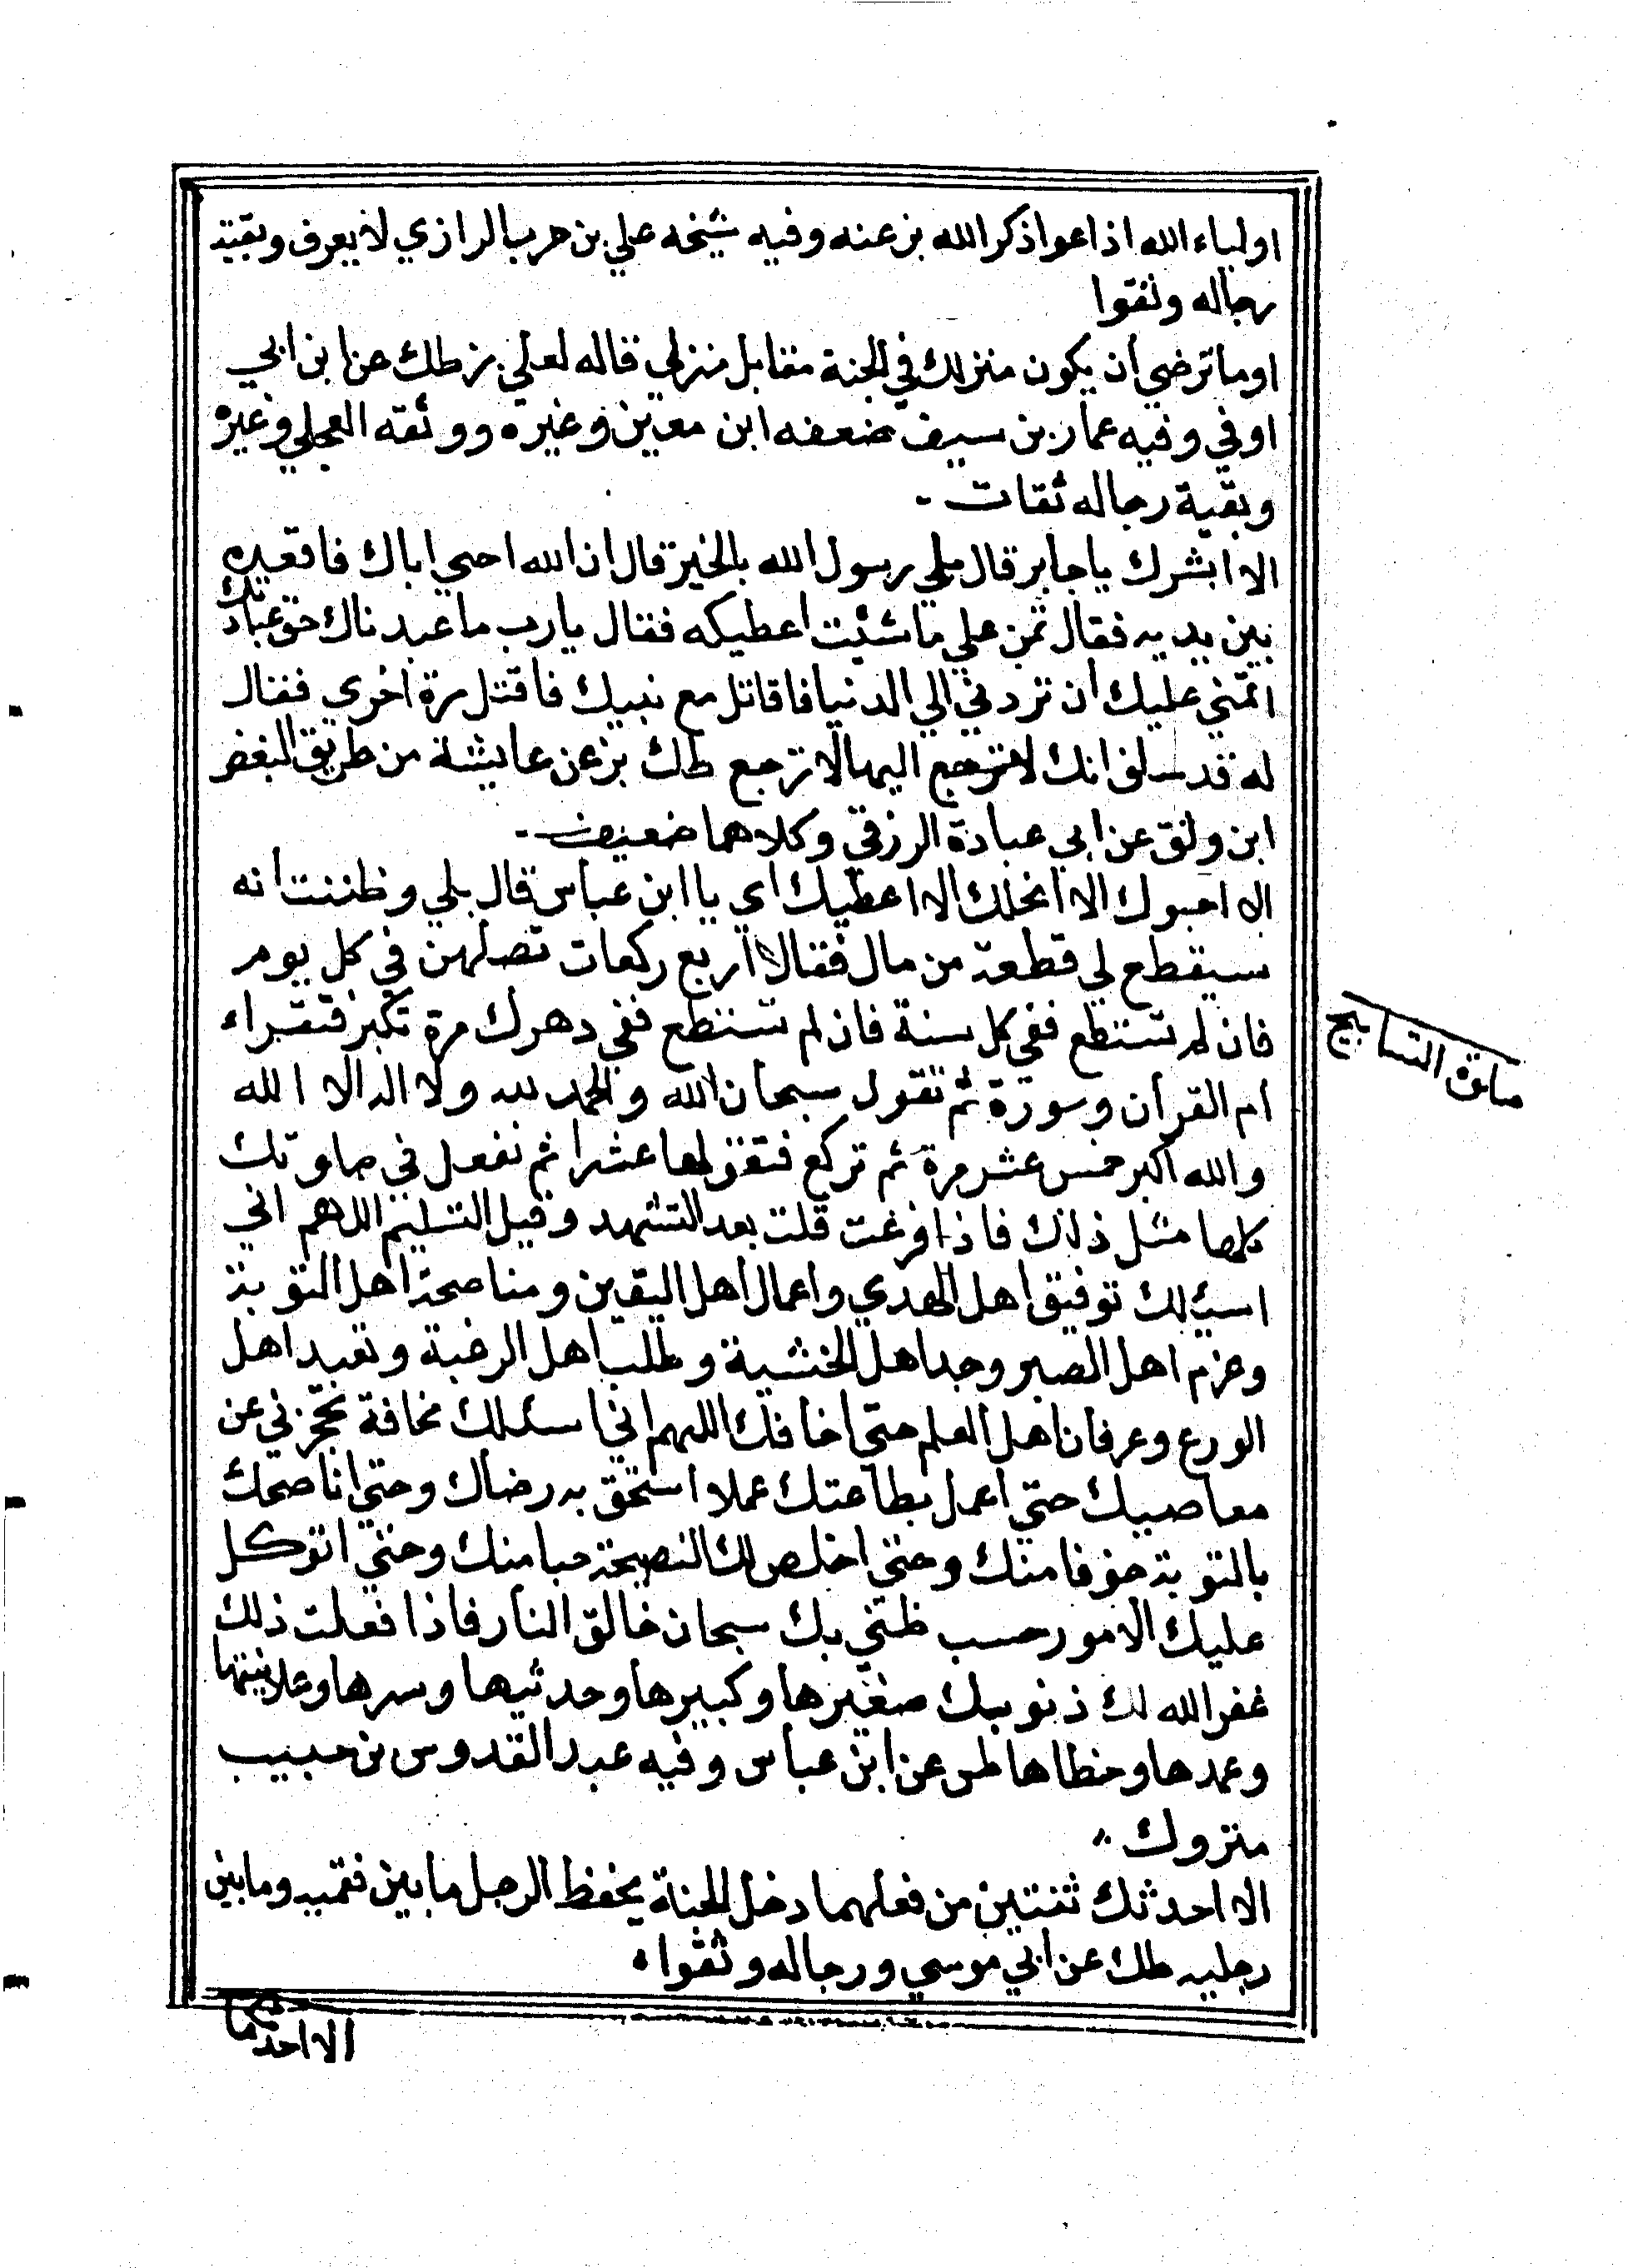 اولياء الله اذا عوا ذكر الله بز عنه وفيه شيخه علي بن حرب الرازي لا يعرف وبقية
رجاله وثقوا
اوما ترضي أن يكون منزلك في الجنة مقابل منزلي قاله لعلي بز طك عن ابن ابي
اوفي وفيه عمار بن سيف ضعفه ابن معين وغيره ووثقه العجلي وغيره
وبقية رجاله ثقات -
الا ابشرك يا جابر قال بلي رسول الله بالخير قال ان الله احيي اباك فاقعده
بين يديه فقال تمن علي ما شئت اعطيكه فقال يا رب ما عبدناك حق عبادتك
اتمني عليك ان تردني الي الدنيا فاقاتل مع نبيك فاقتل مرة اخري فقال
له قد سلف انك لا ترجع اليها لا ترجع طك بز عن عايشة من طريق الفيض
ابن وثق عن ابي عبادة الرزقي وكلاهما ضعيف -
الا احبوك الا انحلك الا اعطيك اي يا ابن عباس قال بلي وظننت انه
سيقطع لي قطعة من مال فقال اربع ركعات تصلهن في كل يوم
فان لم تستطع ففي كل سنة فان لم تستطع ففي دهرك مرة تكبر فتقراء
ام القرآن وسورة ثم تقول سبحان الله والحمد لله ولا اله الا الله
والله اكبر خمس عشر مرة ثم تركع فتقولها عشرا ثم تفعل في صلوتك
كلها مثل ذلك فاذا فرغت قلت بعد التشهد وقبل التسليم اللهم اني
اسئلك توفيق اهل الهدي واعمال اهل اليقين ومناصحة اهل التوبة
وعزم اهل الصبر وجد اهل الخشية وطلب اهل الرغبة وتعبد اهل
الورع وعرفان اهل العلم حتي اخافك اللهم اني اسئلك مخافة تحجزني عن
معاصيك حتي اعمل بطاعتك عملا استحق به رضاك وحتي اناصحك
بالتوبة خوفا منك وحتي اخلص لك النصيحة حبا منك وحتي اتوكل
عليك الامور حسب ظني بك سبحان خالق النار فاذا فعلت ذلك
غفر الله لك ذنوبك صغيرها وكبيرها وحدثيها وسرها وعلانيتها
وعمدها وخطاها طس عن ابن عباس وفيه عبد القدوس بن حبيب
متروك
الا احدثك ثنتين من فعلهما دخل الجنة يحفظ الرجل ما بين فقميه وما بين
رجليه طك عن ابي موسي ورجاله وثقوا
صلوة التسابيح
الا احدثكما